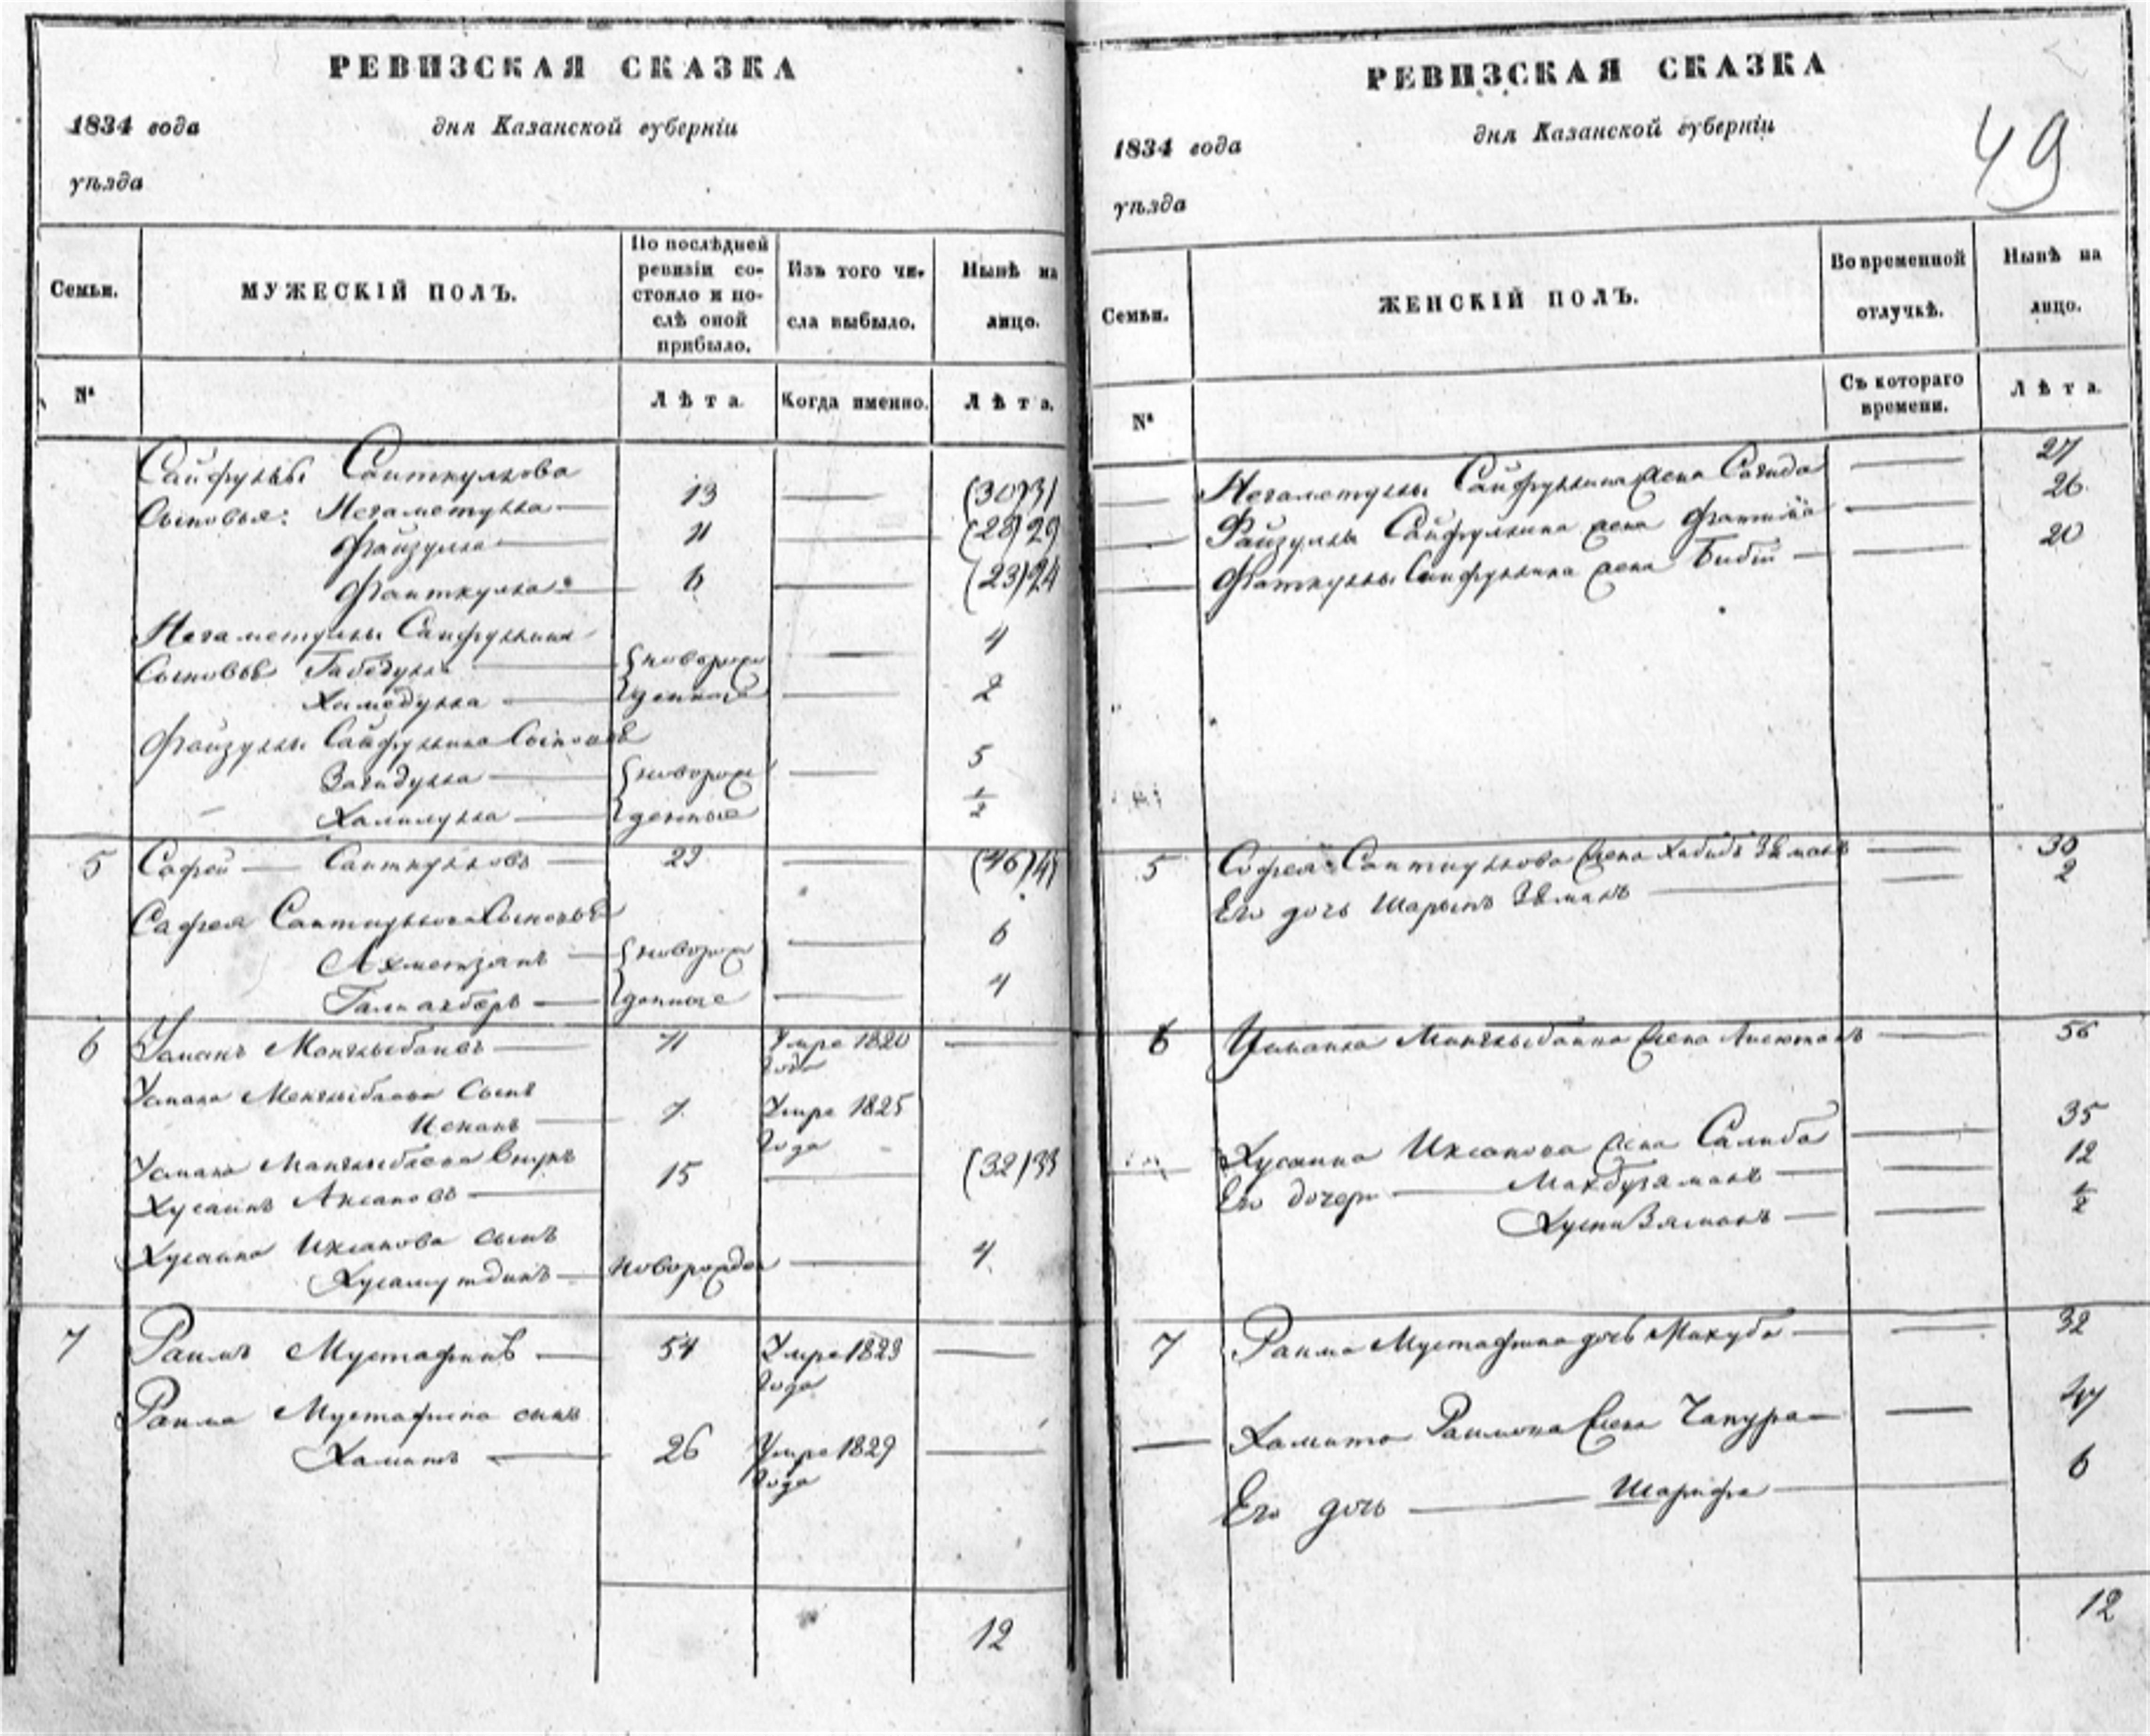 РЕВИЗСКАЯ СКАЗКА
1834 года дня Казанской губерніи
уѣзда
Семьи.
МУЖЕСКІЙ ПОЛЪ.
По послѣдней
ревизіи со-
стояло и по-
слѣ оной
прибыло.
Изъ того чи-
сла выбыло.
Нынѣ на
лицо.
№
Лѣта.
Когда именно.
Лѣта.
Сайфуллы Саиткулова
Сыновья: Негаметулла — 13 — (30)31
Файзулла — 11 — (28)29
Фаткулла — 6 — (23)24
Негаметуллы Сайфуллина
Сыновья Габедулла — новорож 4
Хамедулла — денные — 2
Файзуллы Сайфуллина Сыновья
Загидулла — новорож — 5
Халилулла — денные 1/2
5 Сафей — Саиткуловъ — 29 — (46)
Сафея Саиткулова Сыновья
Ахметзянъ — новорож — 6
— денные — 4
6 Усманъ — 11 Умре 1820 —
года
Усмана сынъ
— 7 Умре 1825
года
Усмана внукъ
Хусаинъ — 15 — (32)33
Хусаина Ихсанова сынъ
Хусамутдинъ — новорожден — 4
7 Раимъ Мустафинъ — 54 Умре 1823 —
года
Раима Мустафина сынъ
Хамитъ — 26 Умре 1829 —
года
12
РЕВИЗСКАЯ СКАЗКА
49
1834 года дня Казанской губерніи
уѣзда
Семьи.
ЖЕНСКІЙ ПОЛЪ.
Во временной
отлучкѣ.
Нынѣ на
лицо.
№
Съ котораго
времени.
Лѣта.
Негаметуллы Сайфуллина жена Сагида — 27
Файзуллы Сайфуллина жена — 26
Фаткуллы Сайфуллина жена Биби — 20
5 Сафея Саиткулова жена — 30
Его дочь — 2
6 Усмана жена — 56
Хусаина Ихсанова жена Салиба — 35
Его дочери — — 12
— 1/2
7 Раима Мустафина дочь Махуба — 32
Хамита Раимова жена —
Его дочь — Шарифа — 6
12